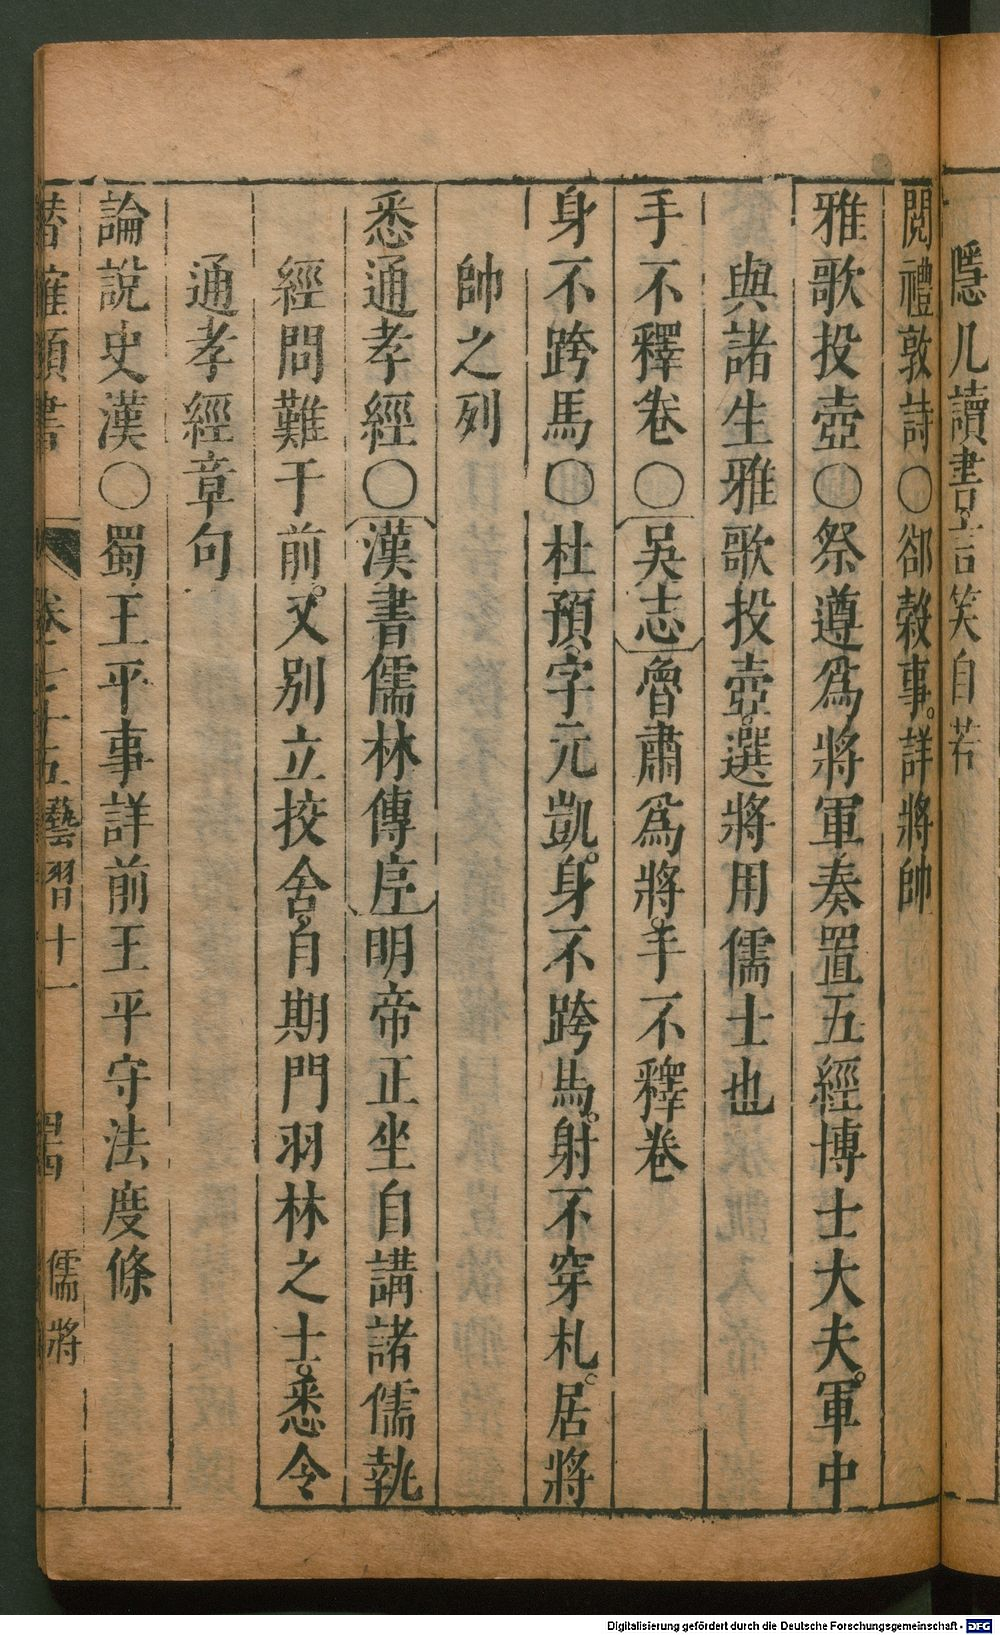 隱几讀書言笑自若
閱禮敦詩〇郤縠事詳將帥
雅歌投壺〇祭遵爲將軍奏置五經博士大夫。軍中
與諸生雅歌投壺。選將用儒士也
手不釋卷〇吳志魯肅爲將。手不釋卷
身不跨馬〇杜預字元凱。身不跨馬。射不穿札。居將
帥之列
悉通孝經〇漢書儒林傳序明帝正坐自講諸儒執
經問難于前。又別立挍舍。自期門羽林之士。悉令
通孝經章句
論說史漢〇蜀王平事詳前王平守法度條
類書 卷七十五 藝習 十一 四 儒將
Digitalisierung gefördert durch die Deutsche Forschungsgemeinschaft - DFG